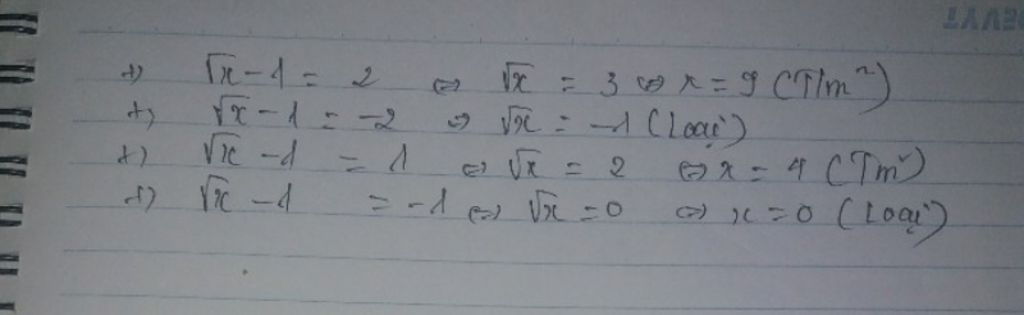 DEVYT
+) √x - 1 = 2 ⇔ √x = 3 ⇔ x = 9 (T/m²)
+) √x - 1 = -2 ⇔ √x = -1 (Loại)
+) √x - 1 = 1 ⇔ √x = 2 ⇔ x = 4 (Tm²)
+) √x - 1 = -1 ⇔ √x = 0 ⇔ x = 0 (Loại)